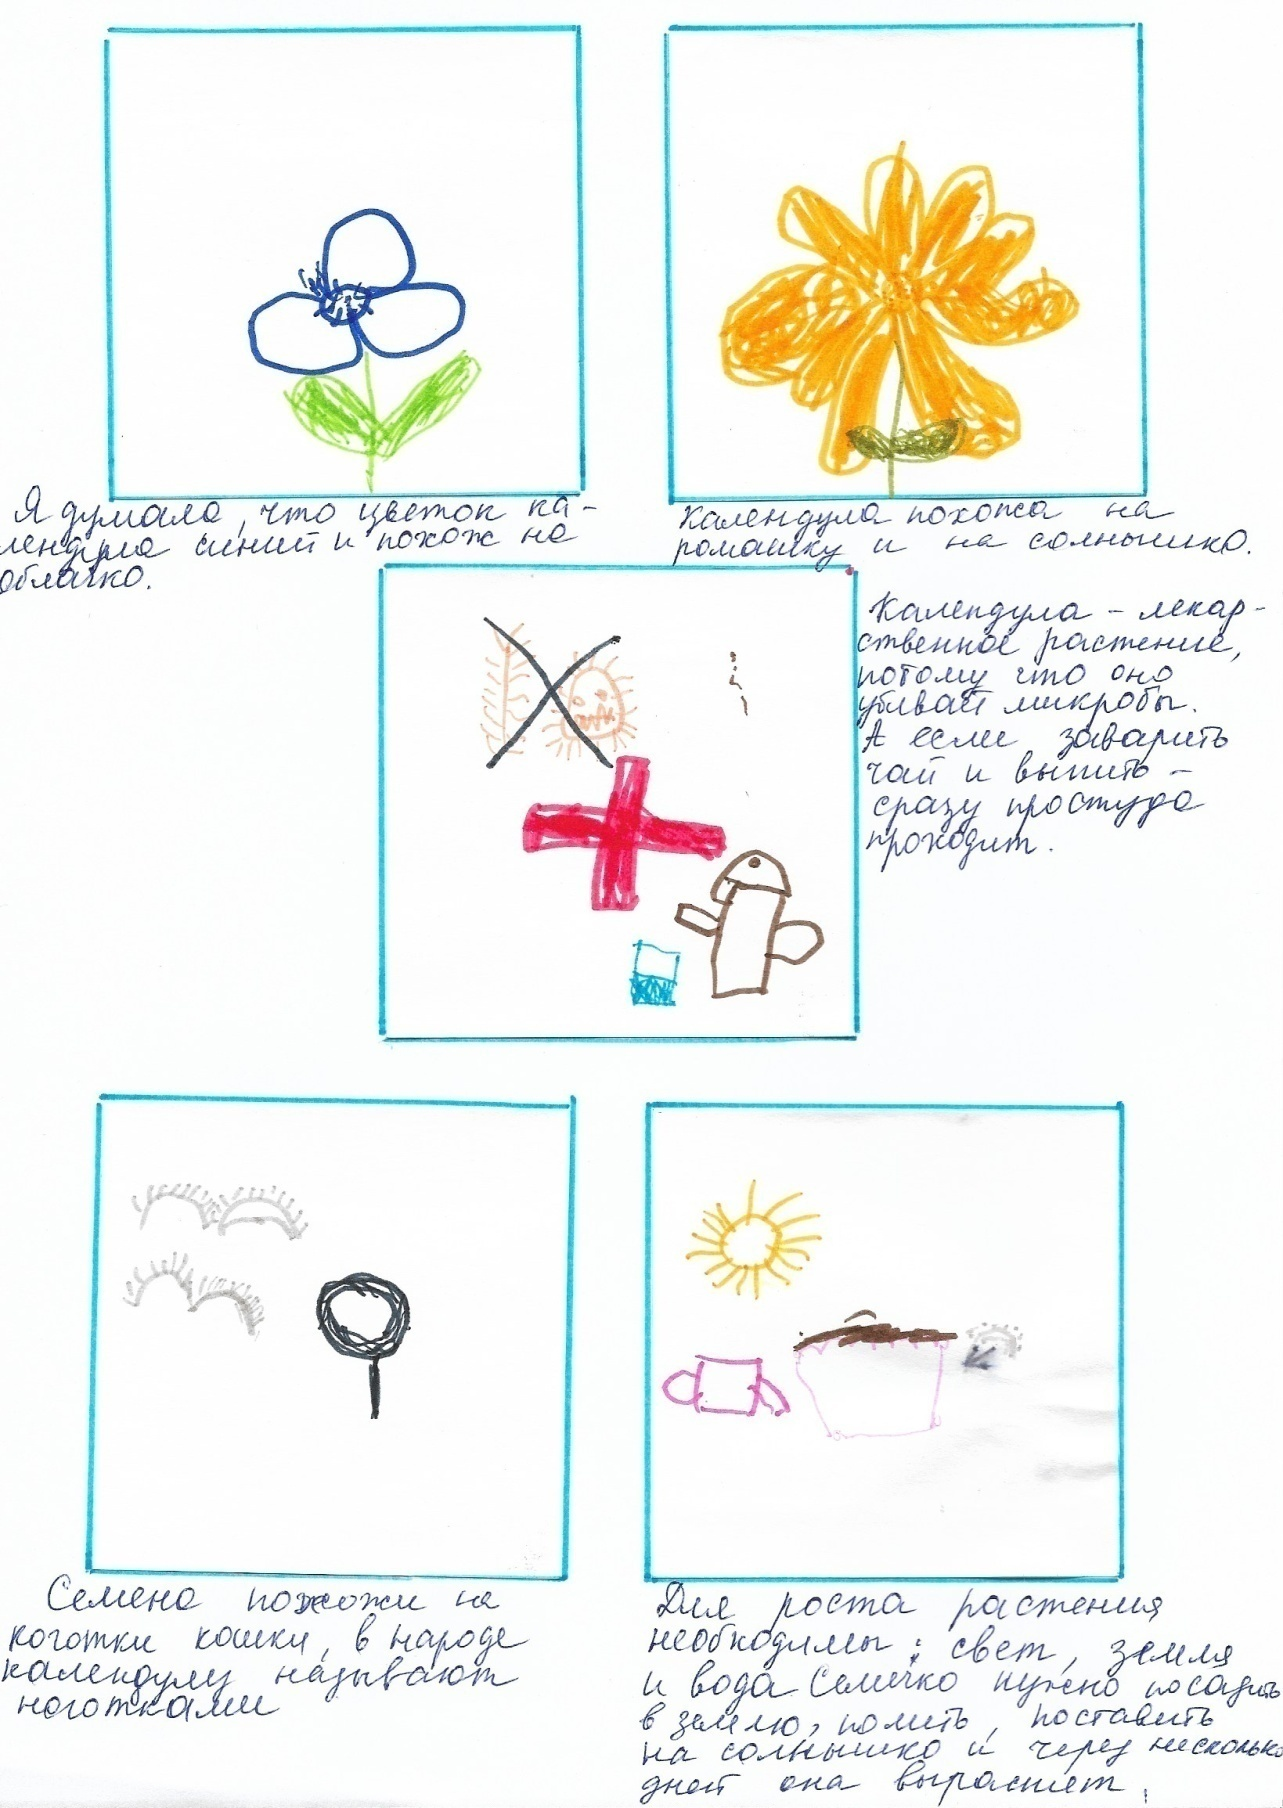 Я думала, что цветок ка-
лендула синий и похож на
облачко.
Календула похожа на
ромашку и на солнышко.
Календула - лекар-
ственное растение,
потому что оно
убивает микробы.
А если заварить
чай и выпить -
сразу простуда
проходит.
Семена похожи на
коготки кошки, в народе
календулу называют
ноготками
Для роста растения
необходимы: свет, земля
и вода Семечко нужно посадить
в землю, полить, поставить
на солнышко и через несколько
дней она вырастет.